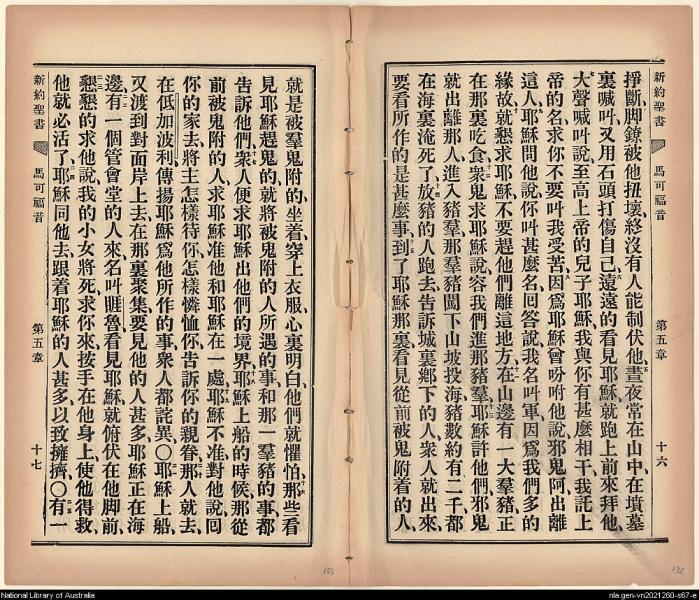 新約聖書 馬可福音 第五章 十六
掙斷、脚鐐被他扭壞、終沒有人能制伏他、晝夜常在山中、在墳墓
裏喊叫、又用石頭打傷自己、遠遠的看見耶穌、就跑上前來拜他、
大聲喊叫說、至高上帝的兒子耶穌、我與你有甚麼相干、我託上
帝的名求你、不要叫我受苦、因爲耶穌曾吩咐他說、邪鬼阿、出離
這人、耶穌問他說、你叫甚麼名、回答說、我名叫軍、因爲我們多的
緣故、就懇求耶穌、不要趕他們離這地方、在山邊有一大羣豬正
在那裏吃食、衆鬼求耶穌說、容我們進那豬羣、耶穌許他們、邪鬼
就出離那人、進入豬羣、那羣豬闖下山坡投海、豬數約有二千、都
在海裏淹死了、放豬的人跑去告訴城裏鄉下的人、衆人就出來、
要看所作的是甚麼事、到了耶穌那裏、看見從前被鬼附着的人、
就是被羣鬼附的、坐着、穿上衣服、心裏明白、他們就懼怕、那些看
見耶穌趕鬼的、就將被鬼附的人所遇的事、和那一羣豬的事、都
告訴他們、衆人便求耶穌出他們的境界、耶穌上船的時候、那從
前被鬼附的人、求耶穌准他和耶穌在一處、耶穌不准、對他說、回
你的家去、將主怎樣待你、怎樣憐恤你、告訴你的親眷、那人就去、
在低加波利、傳揚耶穌爲他所作的事、衆人都詫異○耶穌上船、
又渡到對面岸上去、在那裏聚集要見他的人甚多、耶穌正在海
邊、有一個管會堂的人來、名叫睚魯、看見耶穌、就俯伏在他脚前、
懇懇的求他說、我的小女將死、求你來按手在他身上、使他得救、
他就必活了、耶穌同他去、跟着耶穌的人甚多、以致擁擠○有一
新約聖書 馬可福音 第五章 十七
133
132
National Library of Australia
nla.gen-vn2021260-s67-e